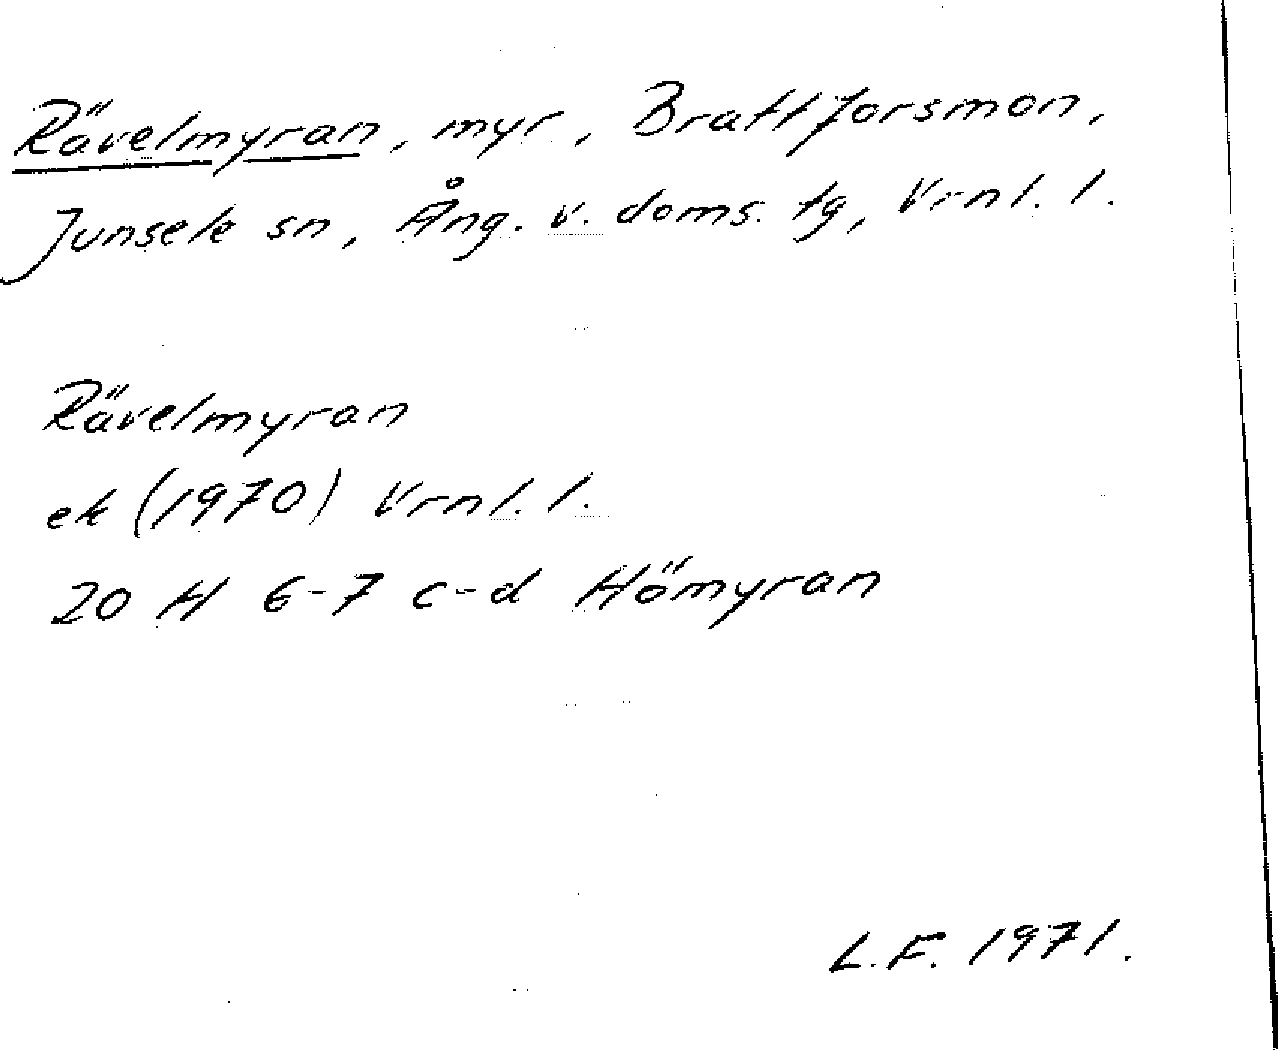 Rävelmyran, myr, Brattforsmon,
Junsele sn, Ång. v. doms. tg, Vrnl. l.
Rävelmyran
ek (1970) Vrnl. l.
20 H 6-7 c-d Hömyran
L.F. 1971.